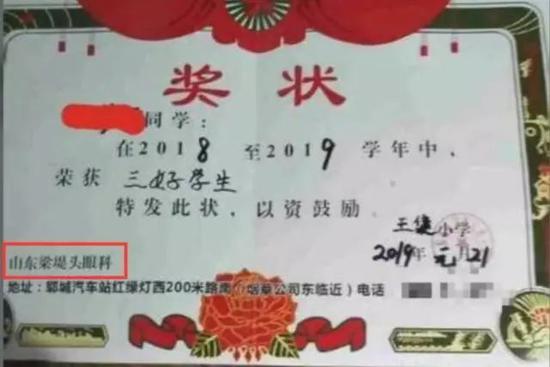 奖状
同学：
在2018至2019学年中，
荣获三好学生
特发此状，以资鼓励
王堤小学
2019年元月21
山东梁堤头眼科
地址：郓城汽车站红绿灯西200米路南（烟草公司东临近）电话